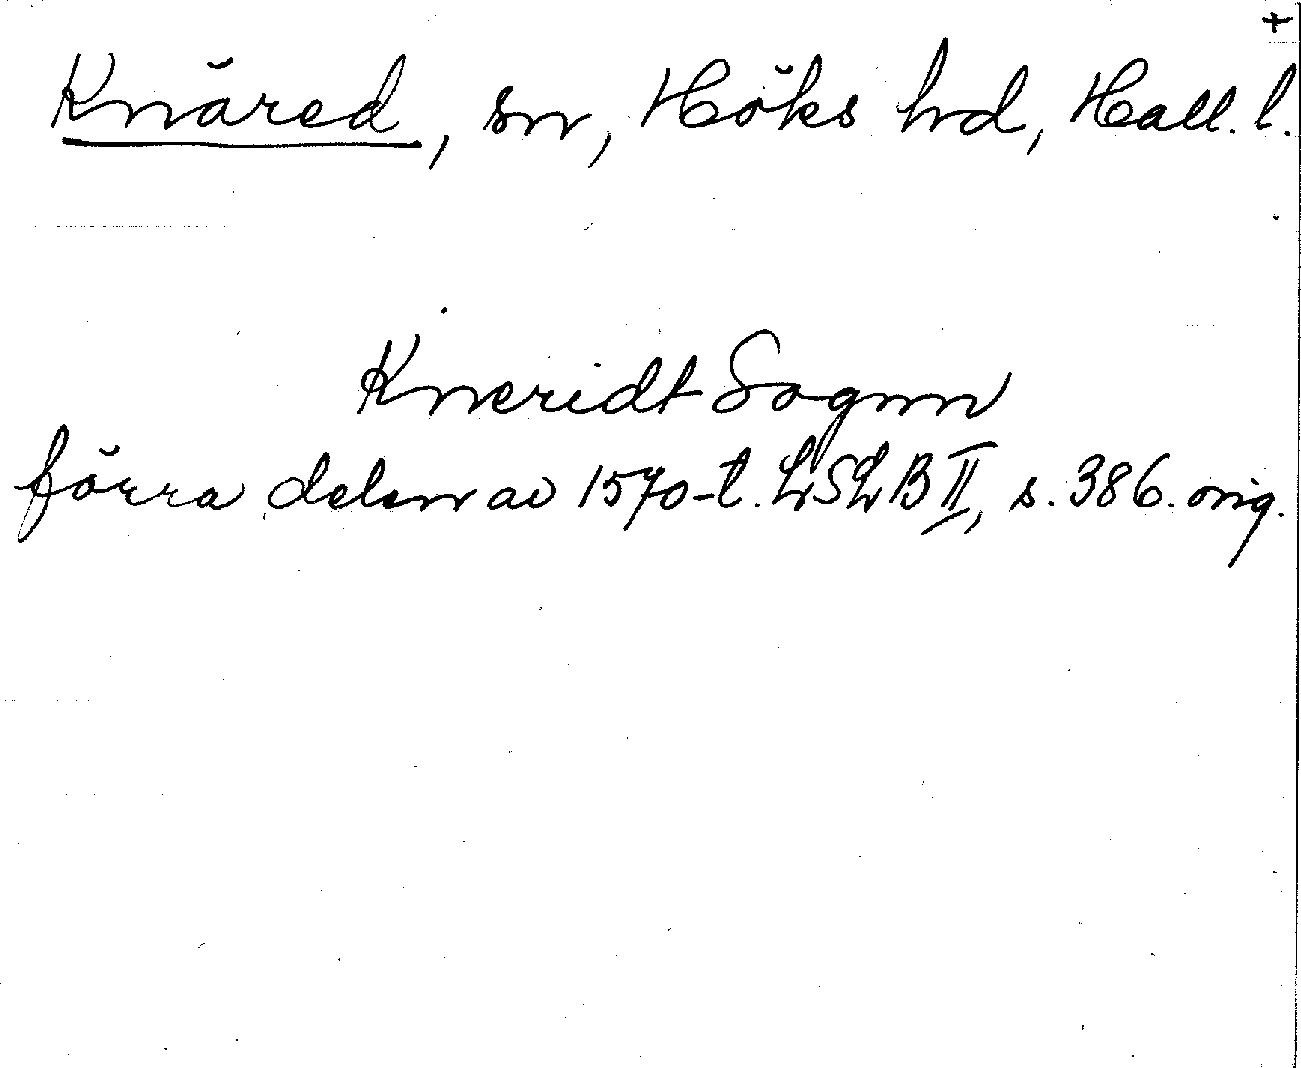 +
Knäred, sn, Höks hd, Hall. l.
Kneridt Sognn
förra delen av 1570-t. LSLB II, s. 386. orig.